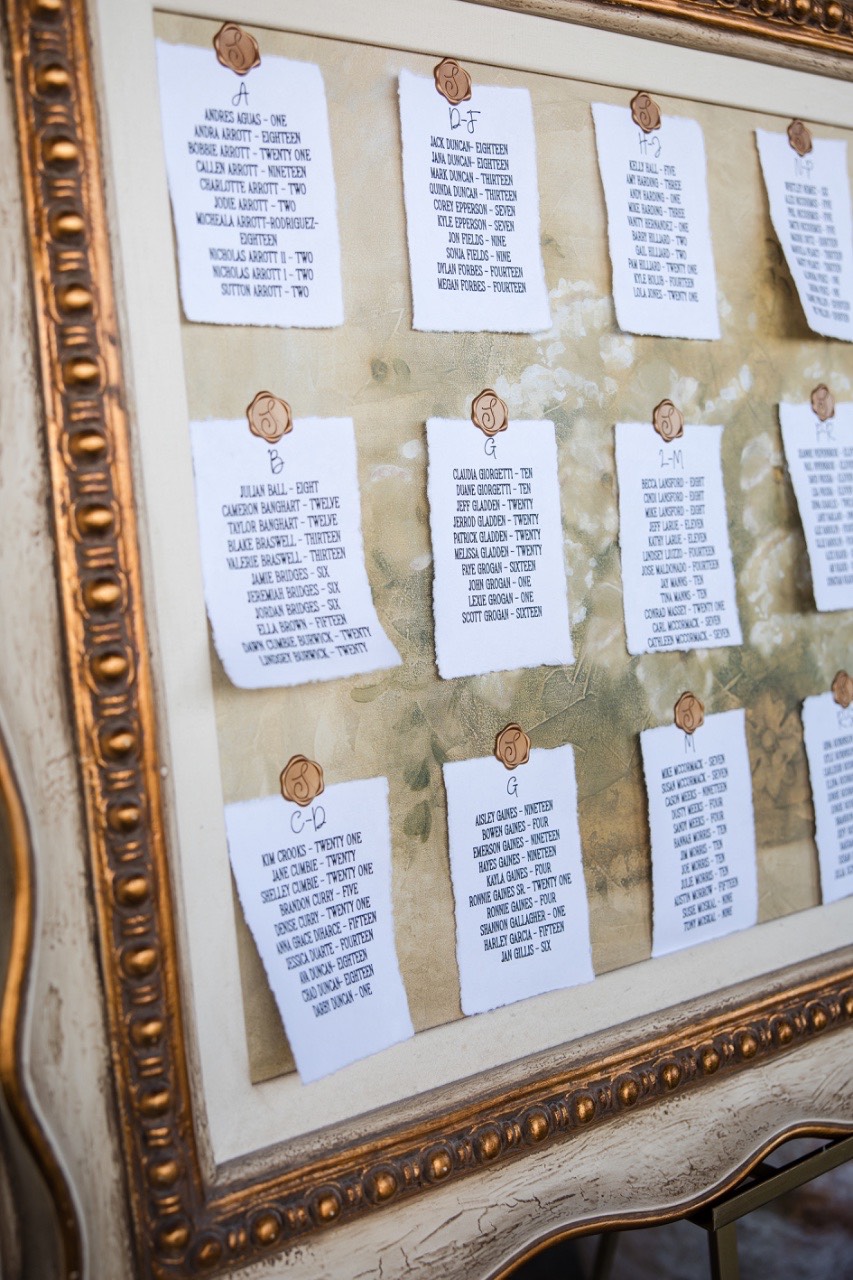 A
ANDRES AGUAS - ONE
ANDRA ARROTT - EIGHTEEN
BOBBIE ARROTT - TWENTY ONE
CALLEN ARROTT - NINETEEN
CHARLOTTE ARROTT - TWO
JODIE ARROTT - TWO
MICHEALA ARROTT-RODRIGUEZ-
EIGHTEEN
NICHOLAS ARROTT II - TWO
NICHOLAS ARROTT I - TWO
SUTTON ARROTT - TWO
D-F
JACK DUNCAN- EIGHTEEN
JANA DUNCAN- EIGHTEEN
MARK DUNCAN - THIRTEEN
QUINDA DUNCAN - THIRTEEN
COREY EPPERSON - SEVEN
KYLE EPPERSON - SEVEN
JON FIELDS - NINE
SONJA FIELDS - NINE
DYLAN FORBES - FOURTEEN
MEGAN FORBES - FOURTEEN
H-J
KELLY HALL - FIVE
AMY HARDING - THREE
ANDY HARDING - ONE
MIKE HARDING - THREE
VANITY HERNANDEZ - ONE
BARRY HILLIARD - TWO
GAIL HILLIARD - TWO
PAM HILLIARD - TWENTY ONE
KYLE HOLUB - FOURTEEN
LOLA JONES - TWENTY ONE
N-P
B
JULIAN BALL - EIGHT
CAMERON BANGHART - TWELVE
TAYLOR BANGHART - TWELVE
BLAKE BRASWELL - THIRTEEN
VALERIE BRASWELL - THIRTEEN
JAMIE BRIDGES - SIX
JEREMIAH BRIDGES - SIX
JORDAN BRIDGES - SIX
ELLA BROWN - FIFTEEN
DAWN CUMBIE BURWICK - TWENTY
LINDSEY BURWICK - TWENTY
G
CLAUDIA GIORGETTI - TEN
DUANE GIORGETTI - TEN
JEFF GLADDEN - TWENTY
JERROD GLADDEN - TWENTY
PATRICK GLADDEN - TWENTY
MELISSA GLADDEN - TWENTY
FAYE GROGAN - SIXTEEN
JOHN GROGAN - ONE
LEXIE GROGAN - ONE
SCOTT GROGAN - SIXTEEN
L-M
BECCA LANSFORD - EIGHT
CINDI LANSFORD - EIGHT
MIKE LANSFORD - EIGHT
JEFF LARUE - ELEVEN
KATHY LARUE - ELEVEN
LINDSEY LIUZZO - FOURTEEN
JOSE MALDONADO - FOURTEEN
JAY MANNS - TEN
TINA MANNS - TEN
CONRAD MASSEY - TWENTY ONE
CARL MCCORMACK - SEVEN
CATHLEEN MCCORMACK - SEVEN
C-D
KIM CROOKS - TWENTY ONE
JANE CUMBIE - TWENTY
SHELLEY CUMBIE - TWENTY ONE
BRANDON CURRY - FIVE
DENISE CURRY - TWENTY ONE
ANNA GRACE DIHARCE - FIFTEEN
JESSICA DUARTE - FOURTEEN
AVA DUNCAN- EIGHTEEN
CHAD DUNCAN- EIGHTEEN
DARBY DUNCAN - ONE
G
AISLEY GAINES - NINETEEN
BOWEN GAINES - FOUR
EMERSON GAINES - NINETEEN
HAYES GAINES - NINETEEN
KAYLA GAINES - FOUR
RONNIE GAINES SR. - TWENTY ONE
RONNIE GAINES - FOUR
SHANNON GALLAGHER - ONE
HARLEY GARCIA - FIFTEEN
JAN GILLIS - SIX
M
MIKE MCCORMACK - SEVEN
SUSAN MCCORMACK - SEVEN
CASON MEEKS - NINETEEN
DUSTY MEEKS - FOUR
SANDY MEEKS - FOUR
HANNAH MORRIS - TEN
JIM MORRIS - TEN
JOE MORRIS - TEN
JULIE MORRIS - TEN
AUSTIN MORROW - FIFTEEN
SUSIE MOSKAL - NINE
TONY MOSKAL - NINE